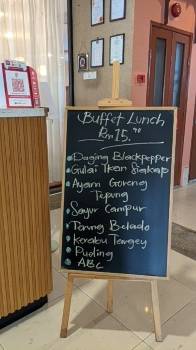 Buffet Lunch
Rm 15.90
Daging Blackpepper
Gulai Ikan Siakap
Ayam Goreng
Tepung
Sayur Campur
Terung Belado
Kerabu Taugey
Puding
ABC